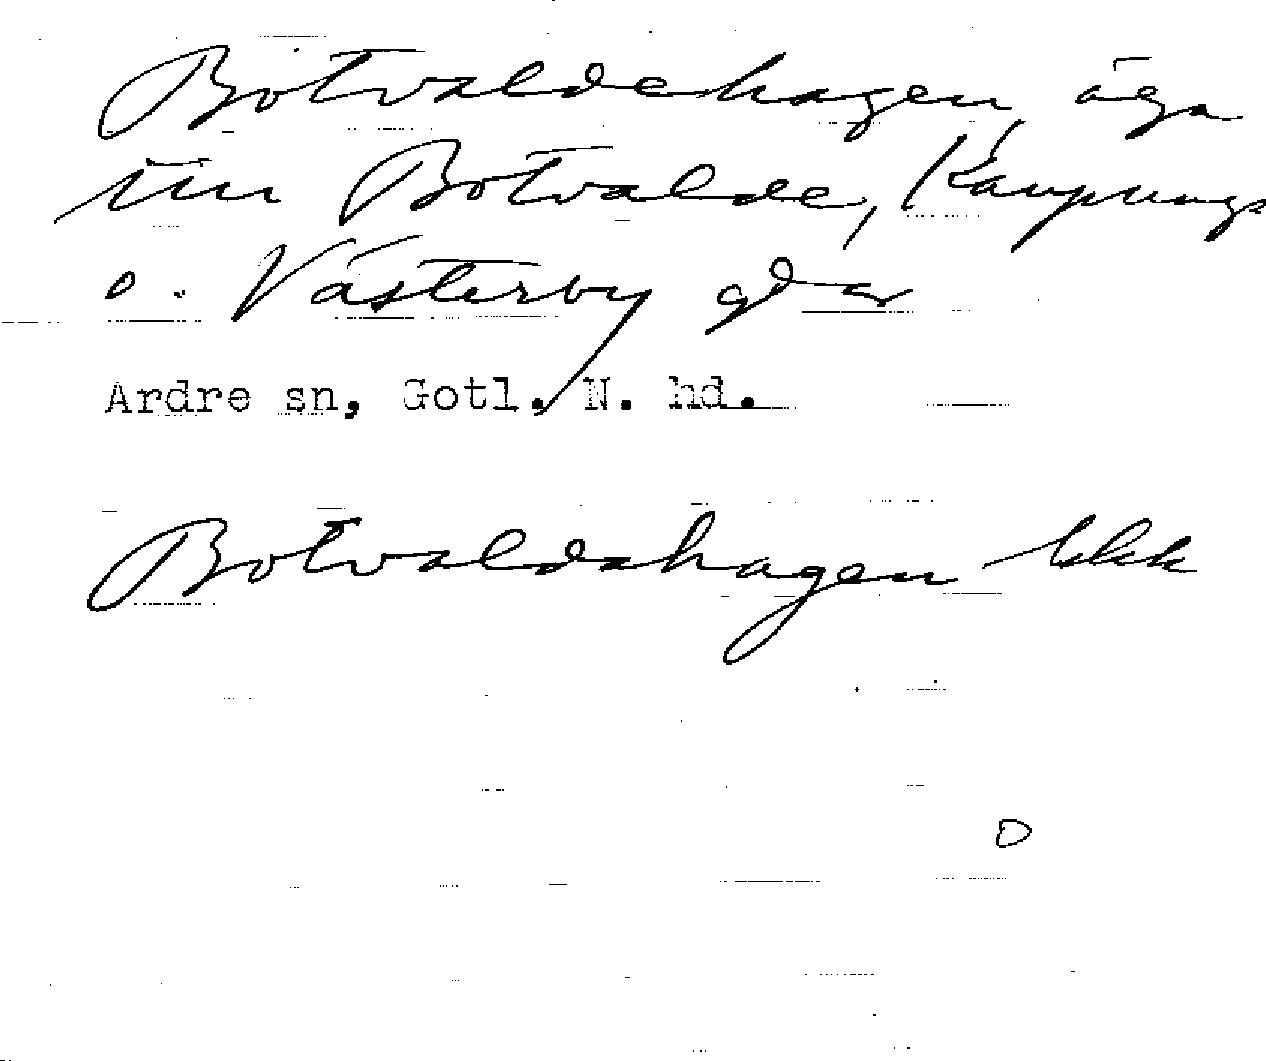 Botvaldehagen, äga
till Botvalde, Kaupungs
o. Västerby gdar
Ardre sn, Gotl. N. hd.
Botvaldehagen blkk